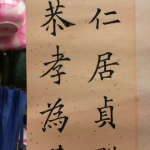 仁居貞
恭孝為